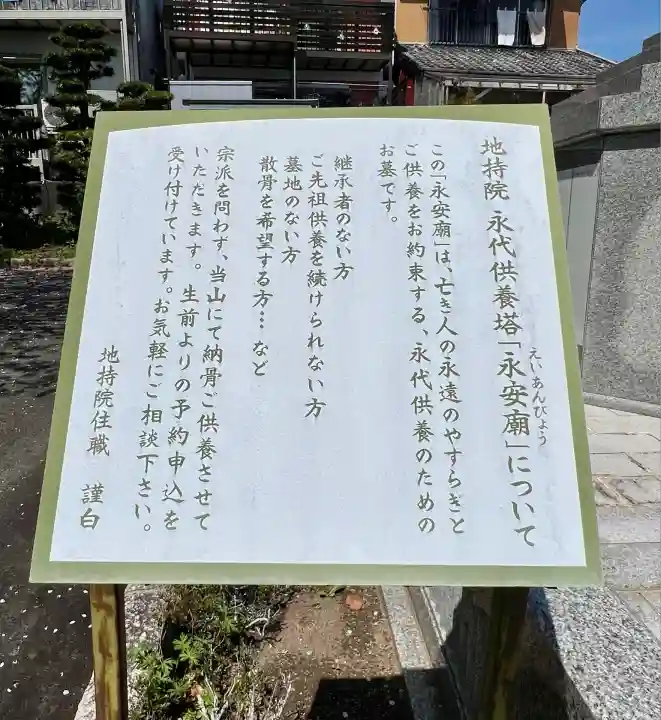 地持院 永代供養塔「永安廟」について
えいあんびょう
この「永安廟」は、亡き人の永遠のやすらぎと
ご供養をお約束する、永代供養のための
お墓です。
継承者のない方
ご先祖供養を続けられない方
墓地のない方
散骨を希望する方… など
宗派を問わず、当山にて納骨ご供養させて
いただきます。生前よりの予約申込を
受け付けています。お気軽にご相談下さい。
地持院住職 謹白